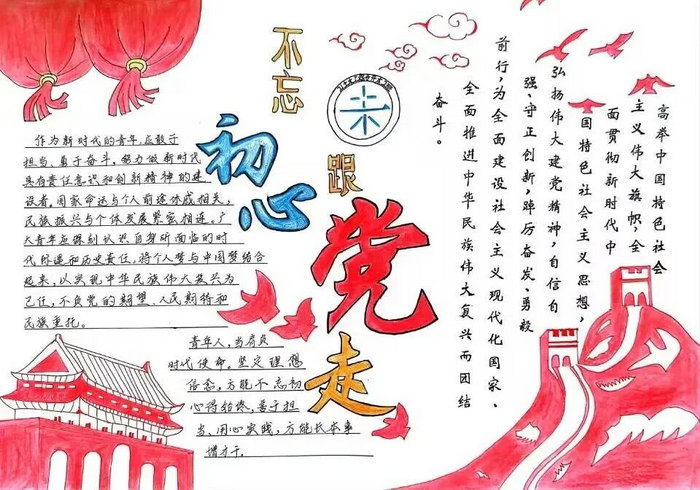 不忘
初心
跟
党
走
作为新时代的青年,应敢于
担当,勇于奋斗,努力做新时代
具有责任意识和创新精神的建
设者,国家命运与个人前途休戚相关,
民族振兴与个体发展紧密相连。广
大青年应深刻认识自身所面临的时
代际遇和历史责任,将个人梦与中国梦结合
起来,以实现中华民族伟大复兴为
己任,不负党的期望、人民期待和
民族重托。
青年人,当肩负
时代使命。坚定理想
信念,方能不忘初
心得始终,善于担
当、用心实践,方能长本事
增才干。
高举中国特色社会
主义伟大旗帜,全
面贯彻新时代中
国特色社会主义思想,
弘扬伟大建党精神,自信自
强、守正创新,踔厉奋发、勇毅
前行,为全面建设社会主义现代化国家、
全面推进中华民族伟大复兴而团结
奋斗。